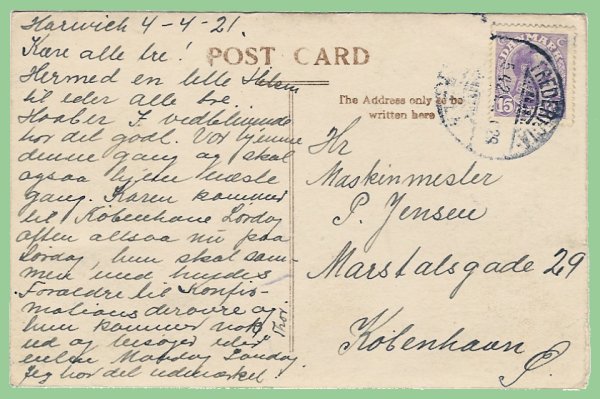 Harwich 4-4-21.
Kære alle tre!
Hermed en lille Hilsen
til eder alle tre.
Haaber I vedblivende
har det godt. Var hjemme
denne gang og skal
ogsaa hjem næste
gang. Karen kommer
til København Lørdag
aften altsaa nu paa
Lørdag, hun skal sam-
men med hendes
Forældre til Konfir-
mationen derovre og
hun kommer nok
ud og besøger eder
enten Mandag Søndag.
Jeg har det udmærket!
Thor.
POST CARD
The Address only to be
written here
DANMARK
15
FREDERICIA
Hr
Maskinmester
P. Jensen
Marstalsgade 29
København
Ø.